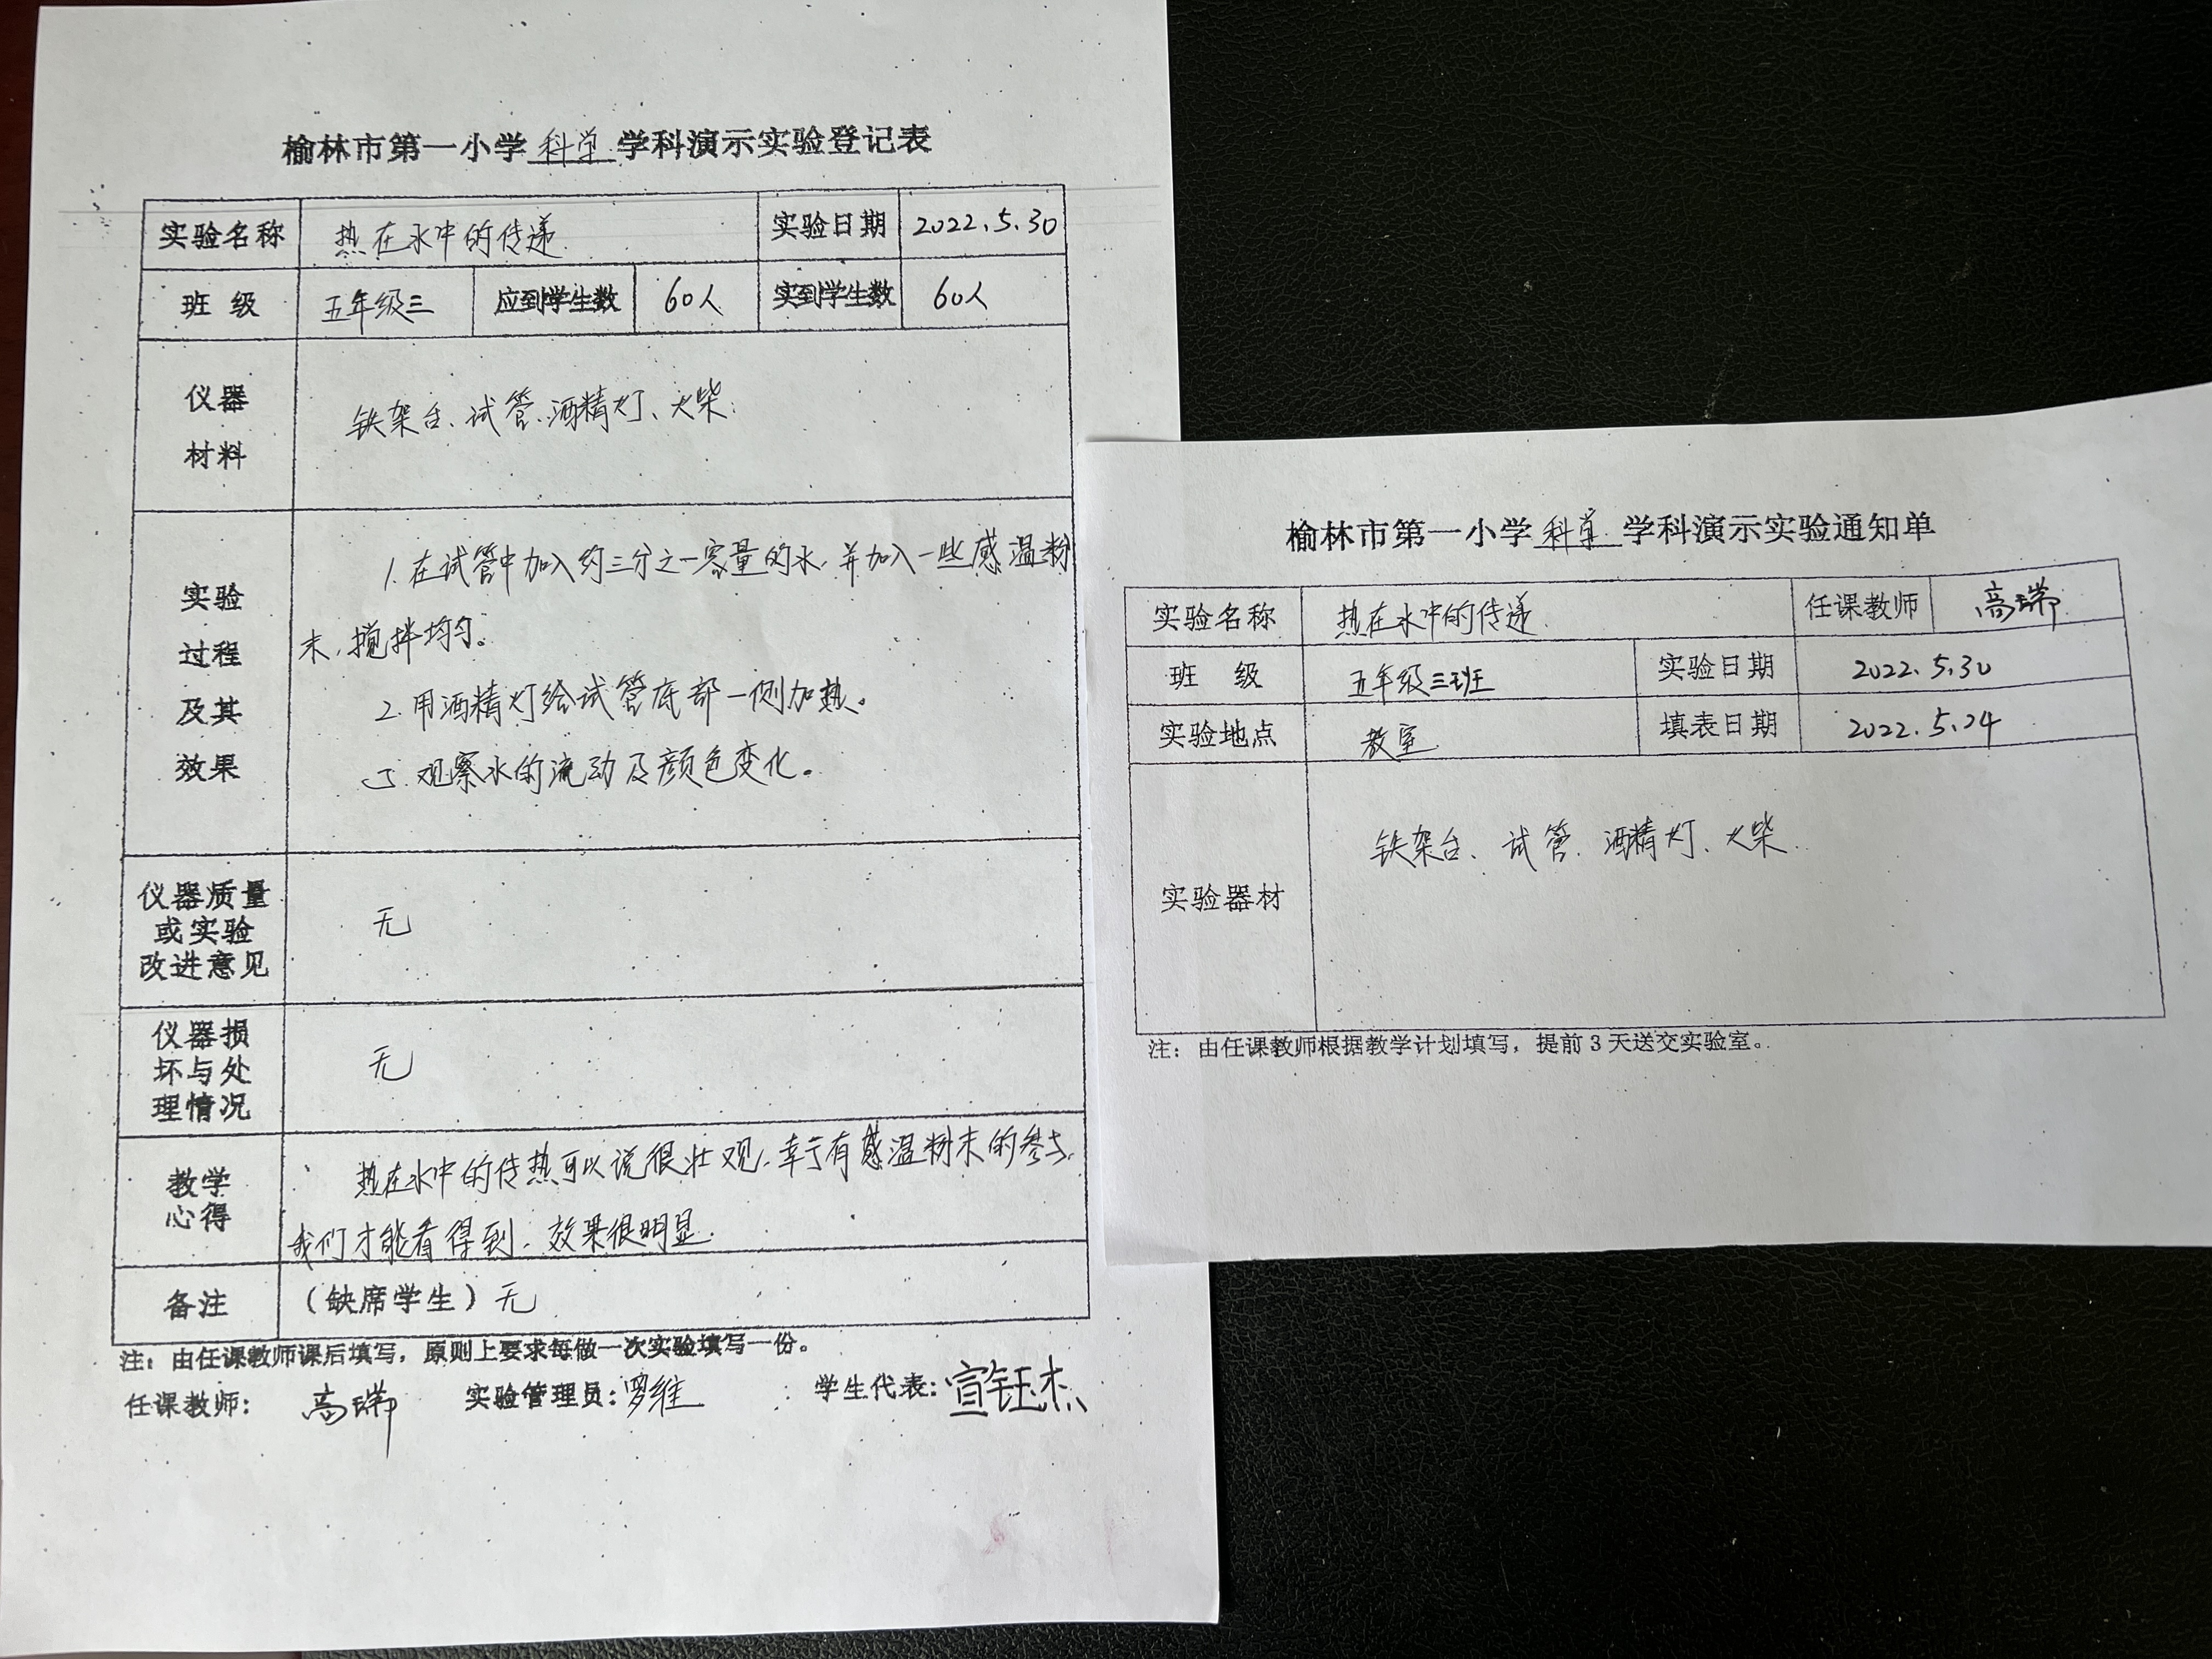 榆林市第一小学 科学 学科演示实验登记表
实验名称 热在水中的传递 实验日期 2022.5.30
班 级 五年级三 应到学生数 60人 实到学生数 60人
仪器
材料
铁架台、试管、酒精灯、火柴.
实验
过程
及其
效果
1.在试管中加入约三分之一容量的水,并加入一些感温粉
末,搅拌均匀。
2.用酒精灯给试管底部一侧加热。
3.观察水的流动及颜色变化。
仪器质量
或实验
改进意见
无
仪器损
坏与处
理情况
无
教学
心得
热在水中的传热可以说很壮观,幸于有感温粉末的参与,
我们才能看得到,效果很明显.
备注 (缺席学生)无
注:由任课教师课后填写,原则上要求每做一次实验填写一份。
任课教师: 高瑞 实验管理员:罗维 学生代表:宣钰杰
榆林市第一小学 科学 学科演示实验通知单
实验名称 热在水中的传递 任课教师 高瑞
班 级 五年级三班 实验日期 2022.5.30
实验地点 教室 填表日期 2022.5.24
实验器材
铁架台、试管、酒精灯、火柴.
注:由任课教师根据教学计划填写,提前3天送交实验室。